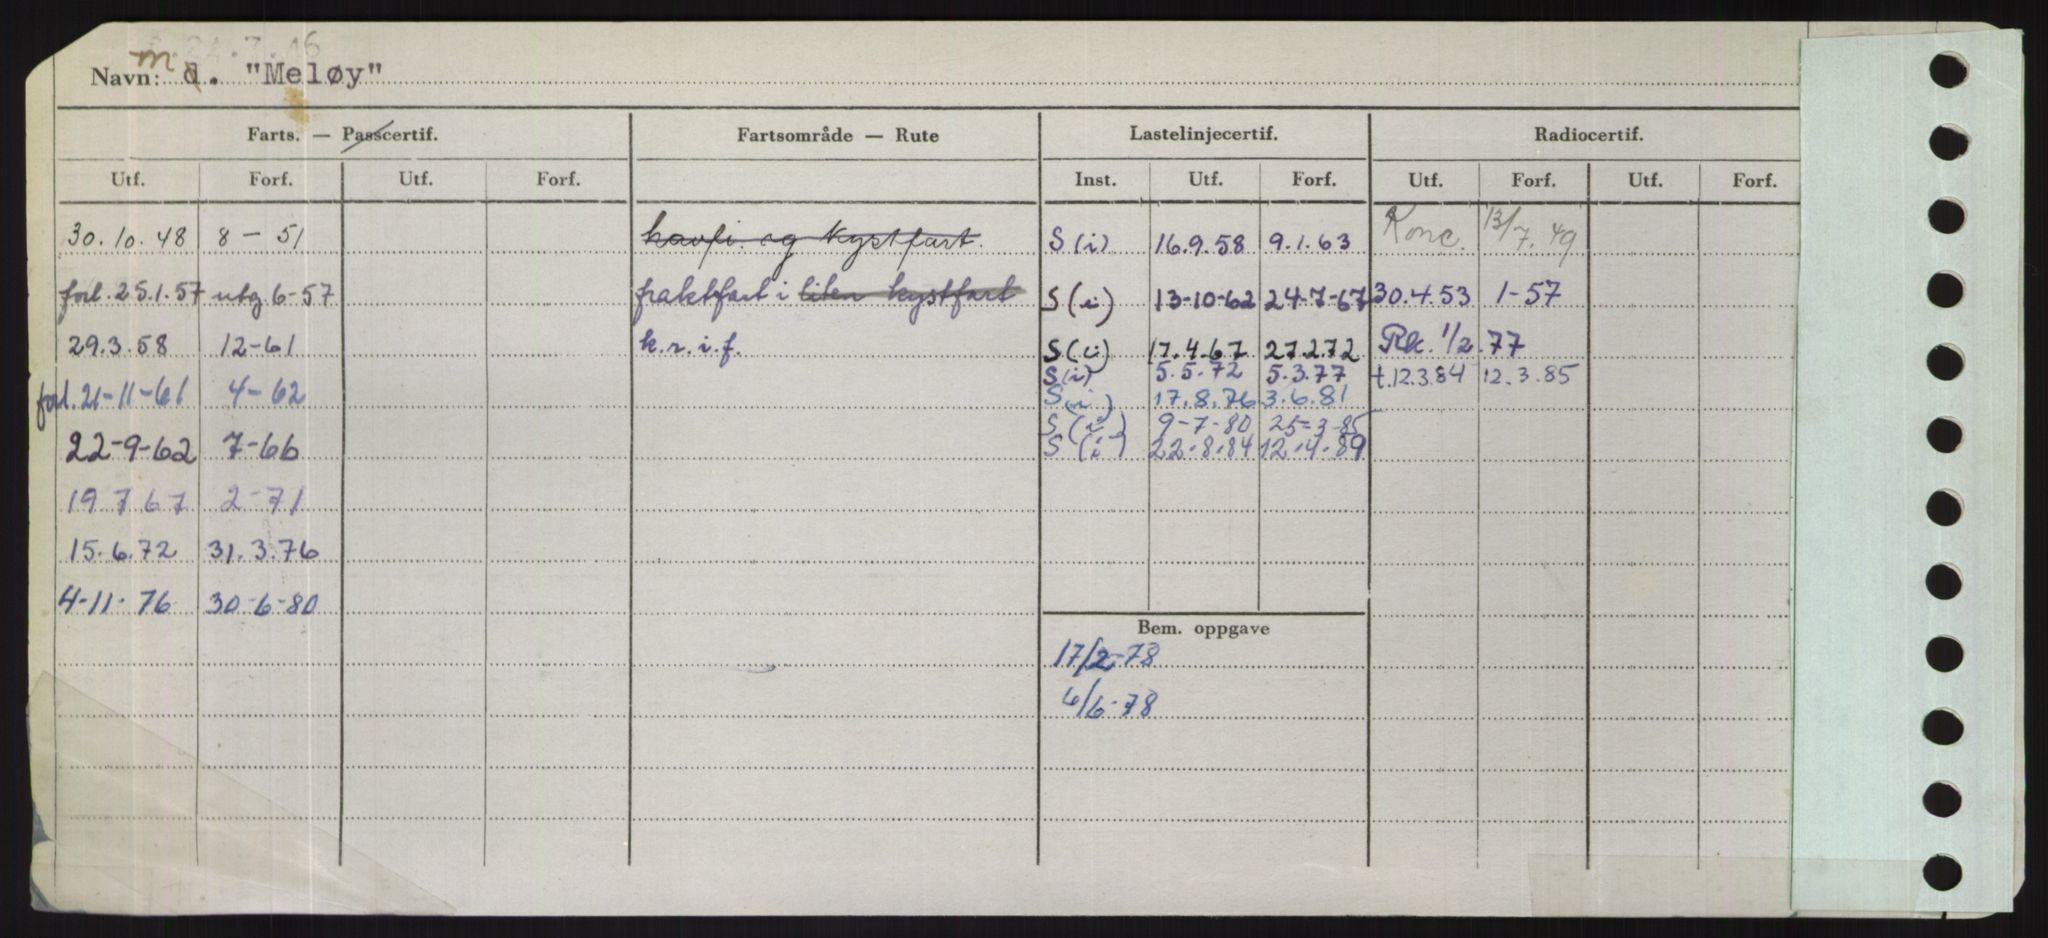 Navn: m d. "Meløy"
Farts. — Passcertif. Fartsområde — Rute Lastelinjecertif. Radiocertif.
Utf. Forf. Utf. Forf. Inst. Utf. Forf. Utf. Forf. Utf. Forf.
30.10.48 8-51 havfi. og kystfart. S(i) 16.9.58 9.1.63 Konc. 13/7.49
forl.25.1.57 utg 6-57 fraktfart i liten kystfart S(i) 13-10-62 24-7-67 30.4.53 1-57
29.3.58 12-61 k.r.i.f. S(i) 17.4.67 27.2.72 Rk. 1/2.77
S(i) 5.5.72 5.3.77 t.12.3.84 12.3.85
forl.21-11-61 4-62 S(i) 17.8.76 3.6.81
S(i) 9-7-80 25-3-85
22-9-62 7-66 S(i) 22.8.84 12.4.89
19 7 67 2-71
15.6.72 31.3.76
4-11-76 30-6-80
Bem. oppgave
17/2-78
6/6-78